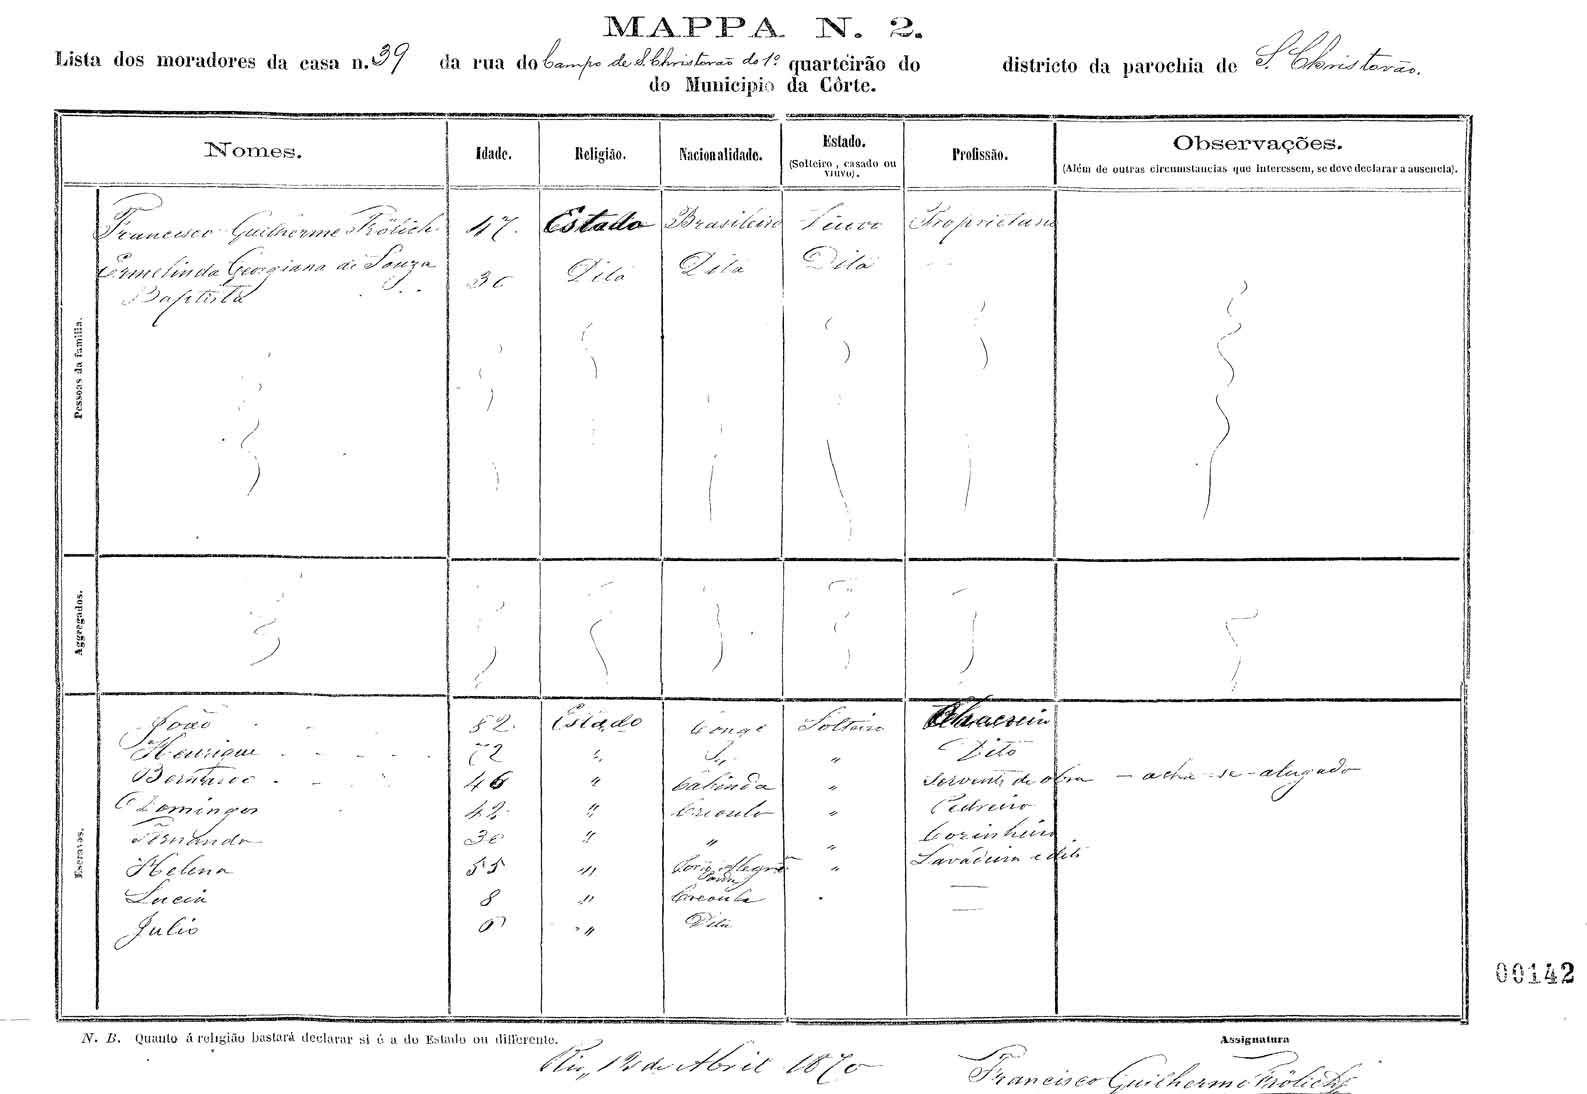 MAPPA N. 2.
Lista dos moradores da casa n. 39 da rua do Campo de S. Christovão do 1º quarteirão do districto da parochia de S. Christovão.
do Municipio da Côrte.
Nomes. Idade. Religião. Nacionalidade. Estado. (Solteiro, casado ou viuvo). Profissão. Observações. (Além de outras circumstancias que interessem, se deve declarar a ausencia).
Pessoas da familia.
Francisco Guilherme Frölich 47. Estado Brasileiro Viuvo Proprietario
Ermelinda Georgiana de Souza 30 Dita Dita Dita
Baptista
Aggregados.
Escravos.
João 52. Estado Congo Solteiro
Henrique 72 " " Dito
46 " Cabinda " Servente de obra – acha-se-alugado
Domingos 42 " Crioulo " Pedreiro
Fernando 30 " " " Cozinheiro
Helena 55 " " Lavadeira e dita
Lucia 8 " Creoula
Julio 6 " Dita
00142
N. B. Quanto á religião bastará declarar si é a do Estado ou differente.
Assignatura
Rio, 12 de Abril 1870
Francisco Guilherme Frölich